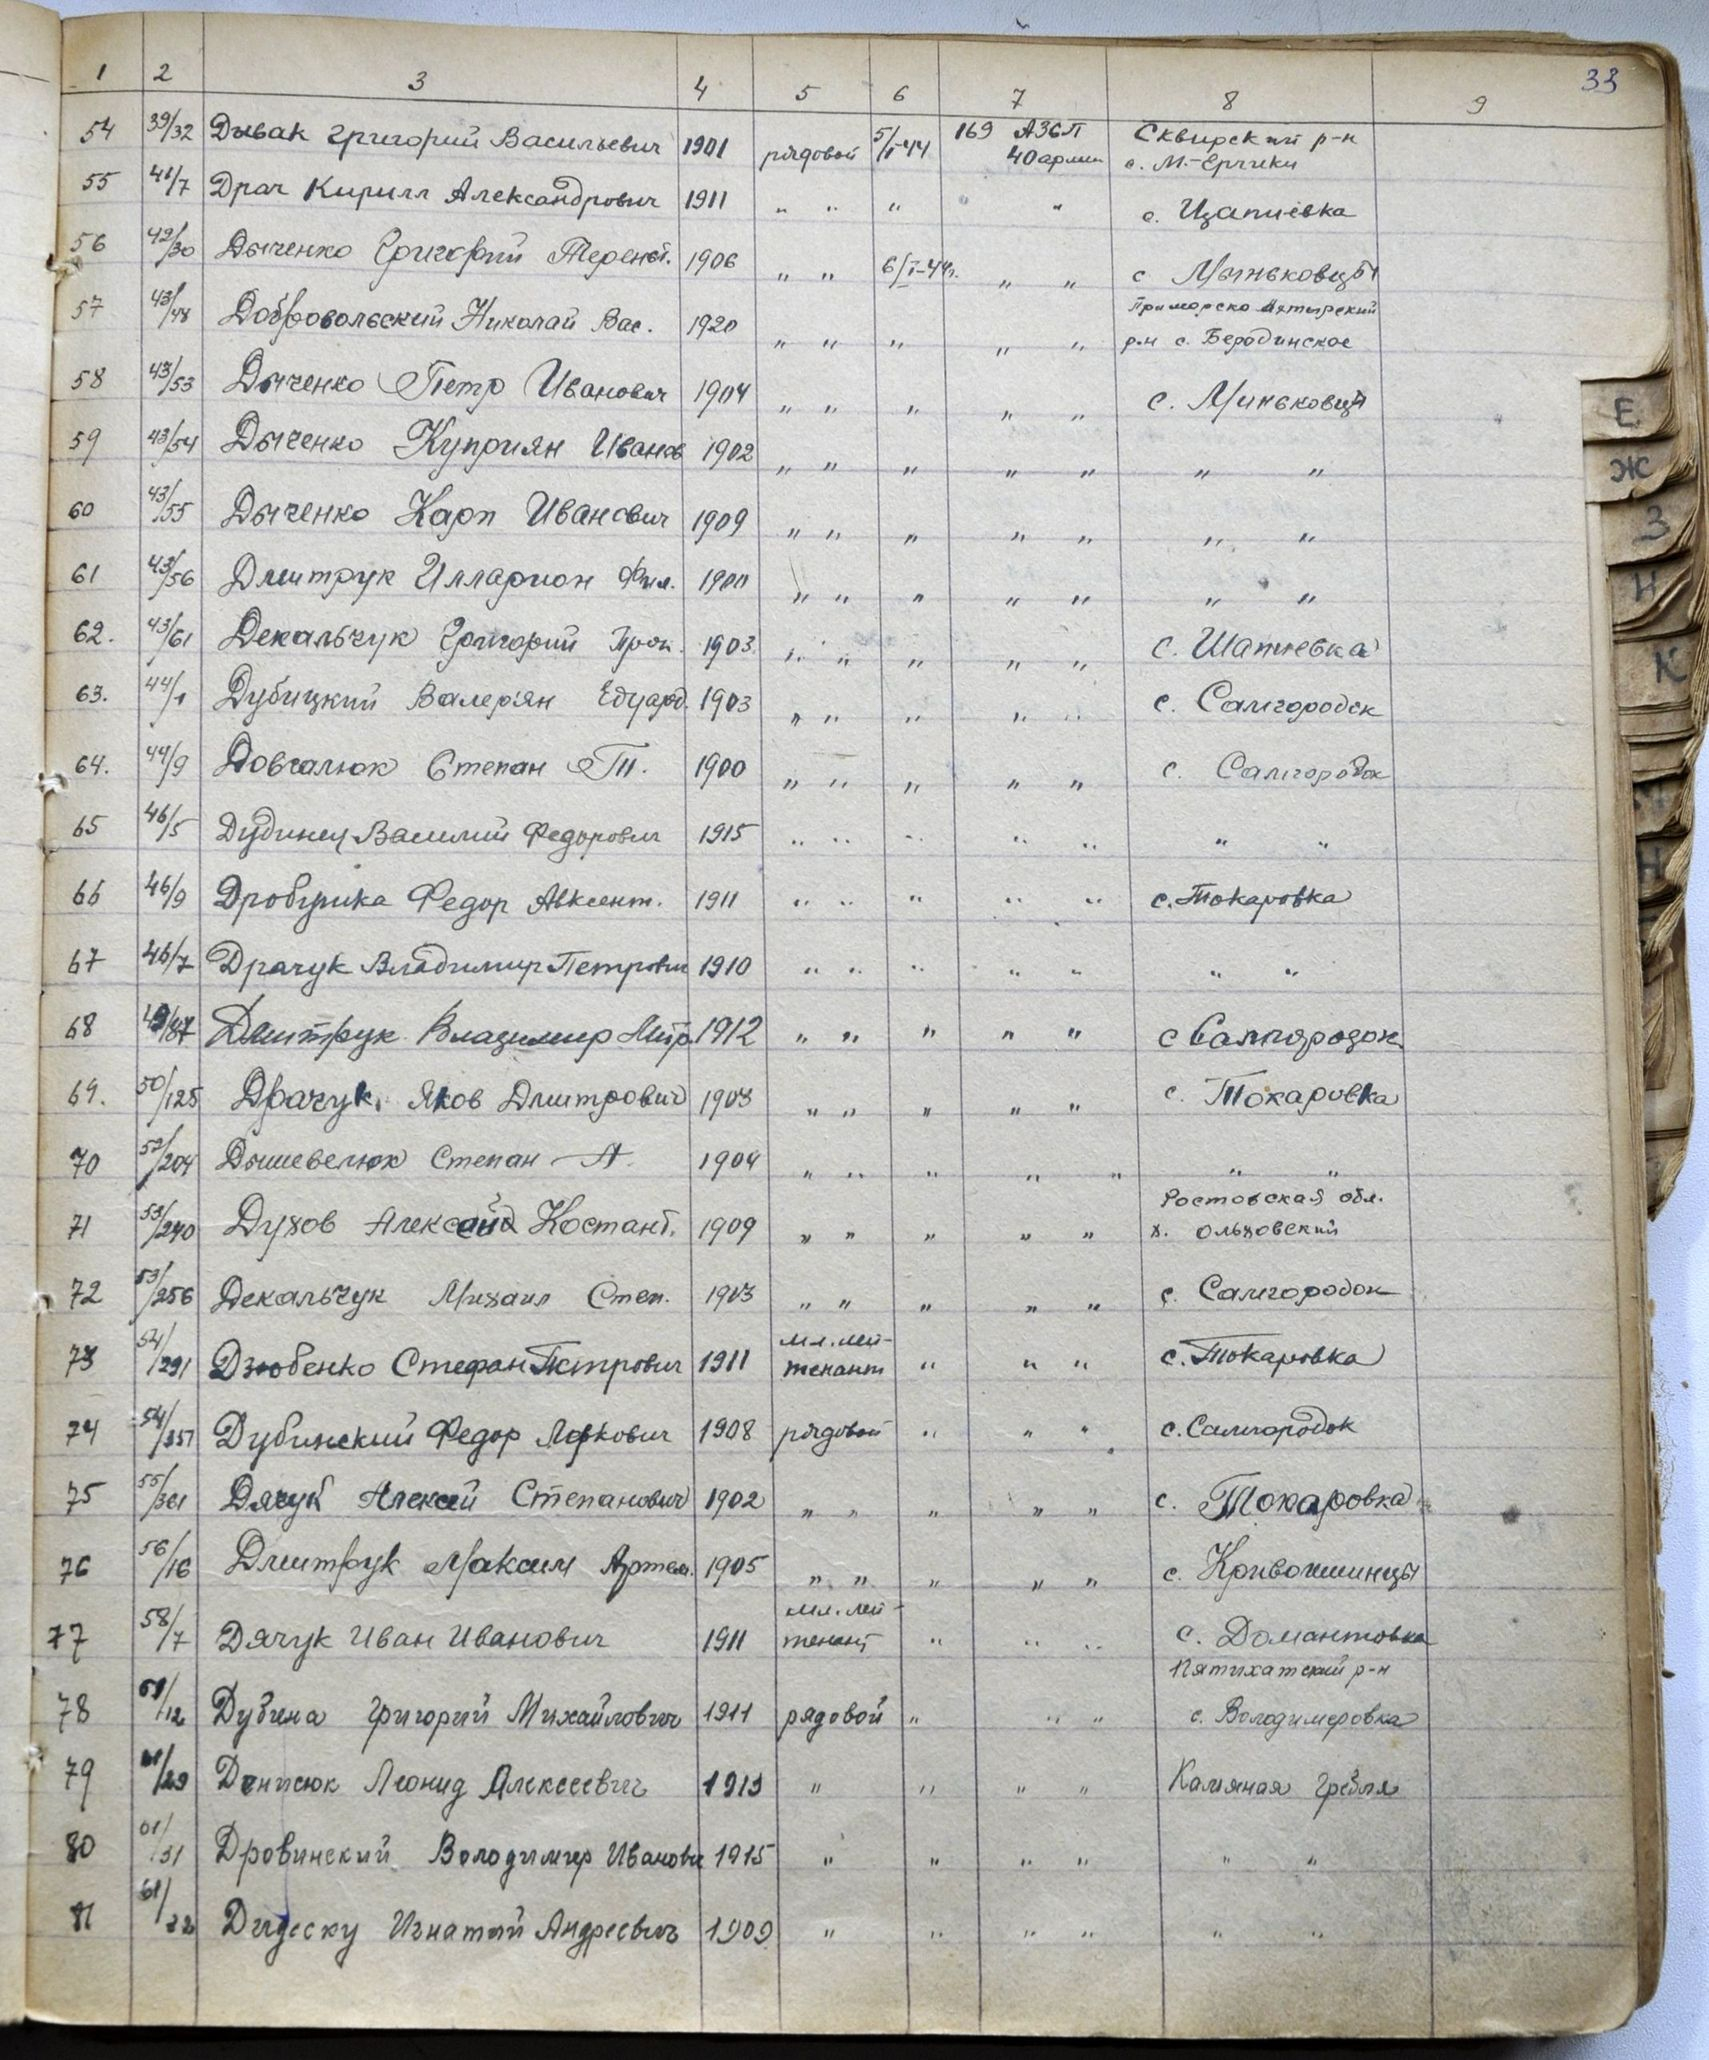 33
1 2 3 4 5 6 7 8 9
54 39/32 Дывак Григорий Васильевич 1901 рядовой 5/I-44 169 АЗСП 40 армии Сквирский р-н с. М.-Ерчики
55 41/7 Драч Кирилл Александрович 1911 " " " " " с. Цапиевка
56 42/30 Дыченко Григорий Терент. 1906 " " 6/I-44г. " " с Миньковцы
57 43/48 Добровольский Николай Вас. 1920 " " " " " Приморско Ахтырский р-н с. Бородинское
58 43/53 Дыченко Петр Иванович 1904 " " " " " с. Миньковцы
59 43/54 Дыченко Куприян Иванов 1902 " " " " " " "
60 43/55 Дыченко Карп Иванович 1909 " " " " " " "
61 43/56 Дмитрук Илларион Фил. " " " " " " "
62. 43/61 Декальчук Григорий Прок. 1903 " " " " " с.
63. 44/1 Дубицкий Валерян Едуард. 1903 " " " " " с. Самгородок
64. 44/9 Довгалюк Степан Т. 1900 " " " " " с. Самгородок
65 46/5 Дудинец Василий Федорович 1915 " " " " " " "
66 46/9 Федор Авксент. 1911 " " " " " с. Токаровка
67 46/7 Драчук Владимир Петрович 1910 " " " " " " "
68 Дмитрук Владимир Митр. 1912 " " " " " с Самгородок
69. 50/125 Драчук Яков Дмитрович 1903 " " " " " с. Токаровка
70 52/204 Дышевелюк Степан А. 1904 " " " " " " "
71 53/240 Духов Костант. 1909 " " " " " Ростовская обл. х. Ольховский
72 53/256 Декальчук Михаил Степ. 1903 " " " " " с. Самгородок
73 54/291 Дзюбенко Стефан Петрович 1911 мл. лейтенант " " " с. Токаровка
74 54/351 Дубинский Федор Левкович 1908 рядовой " " " с. Самгородок
75 55/361 Дячук Алексей Степанович 1902 " " " " " с. Токаровка
76 56/16 Дмитрук Максим Артем. 1905 " " " " " с. Кривошеинцы
77 58/7 Дячук Иван Иванович 1911 мл. лейтенант " " " с. Домантовка
78 /12 Дубина Григорий Михайлович 1911 рядовой " " " Пятихатский р-н с. Володимеровка
79 61/29 Денисюк Леонид Алексеевич 1913 " " " " Камяная Гребля
80 61/31 Дровинский Володимир Иванович 1915 " " " " " "
81 61/ Дидеску Игнатий Андреевич 1909 " " " " " "
Е
Ж
З
И
К
Н